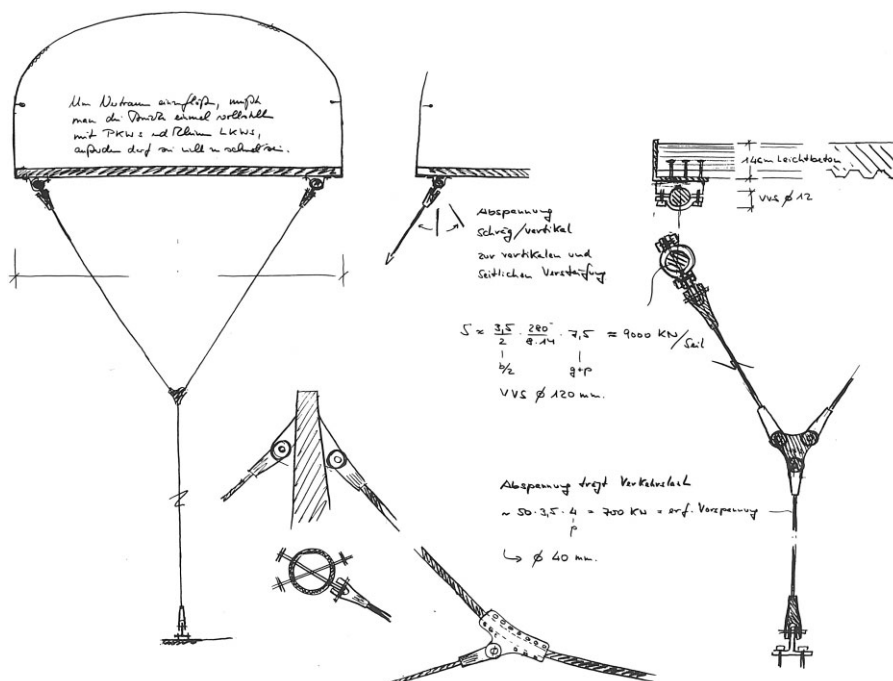 Um Vertrauen einzuflößen, mußte
man die Brücke einmal vollstellen
mit PKWs und kleinen LKWs,
außerdem darf sie nicht zu schnell sein.
Abspannung
schräg/vertikal
zur vertikalen und
seitlichen Versteifung
14cm Leichtbeton
VVS ∅ 12
S ≈ 3,5/2 · 280²/8·14 · 7,5 ≈ 9000 KN/Seil
b/2 g+p
VVS ∅ 120 mm.
Abspannung trägt Verkehrslast
~ 50 · 3,5 · 4 = 700 KN = erf. Vorspannung
p
↳ ∅ 40 mm.